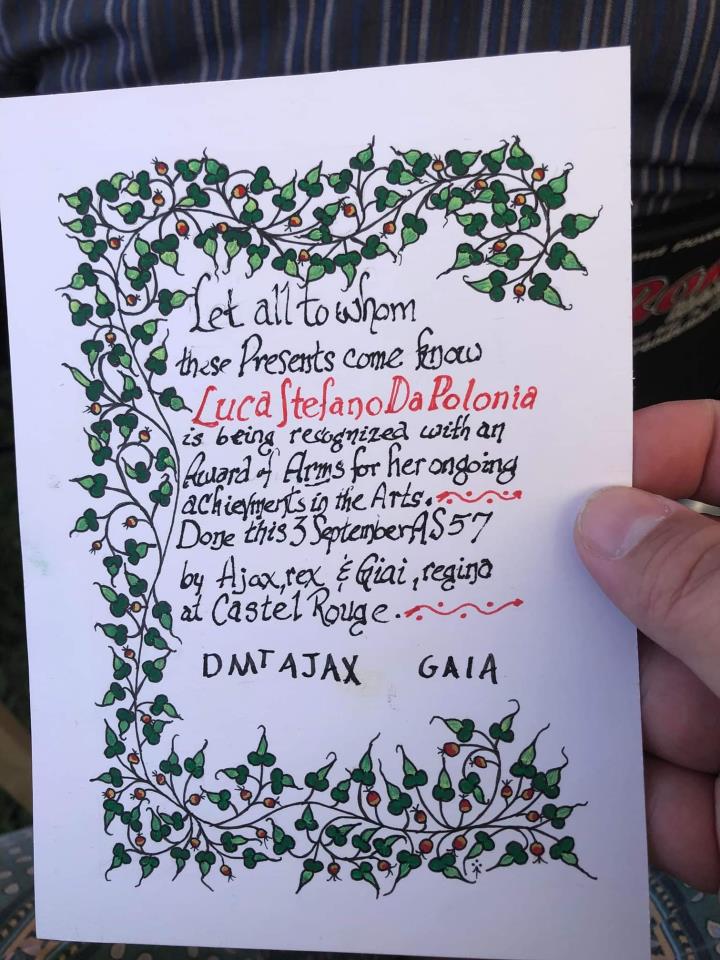 Let all to whom
these Presents come know
Luca Stefano Da Polonia
is being recognized with an
Award of Arms for her ongoing
achievments in the Arts.
Done this 3 September AS 57
by Ajax, rex & Giai, regina
at Castel Rouge.
DMT AJAX GAIA